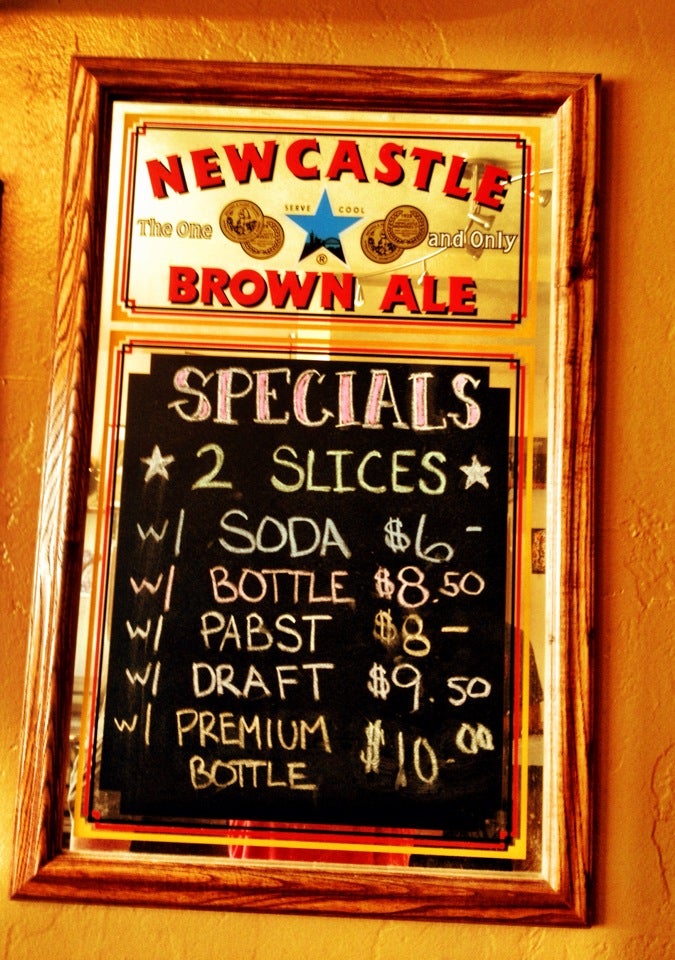 NEWCASTLE
SERVE COOL
The One and Only
®
BROWN ALE
SPECIALS
2 SLICES
W/ SODA $6-
W/ BOTTLE $8.50
W/ PABST $8-
W/ DRAFT $9.50
W/ PREMIUM BOTTLE $10.00